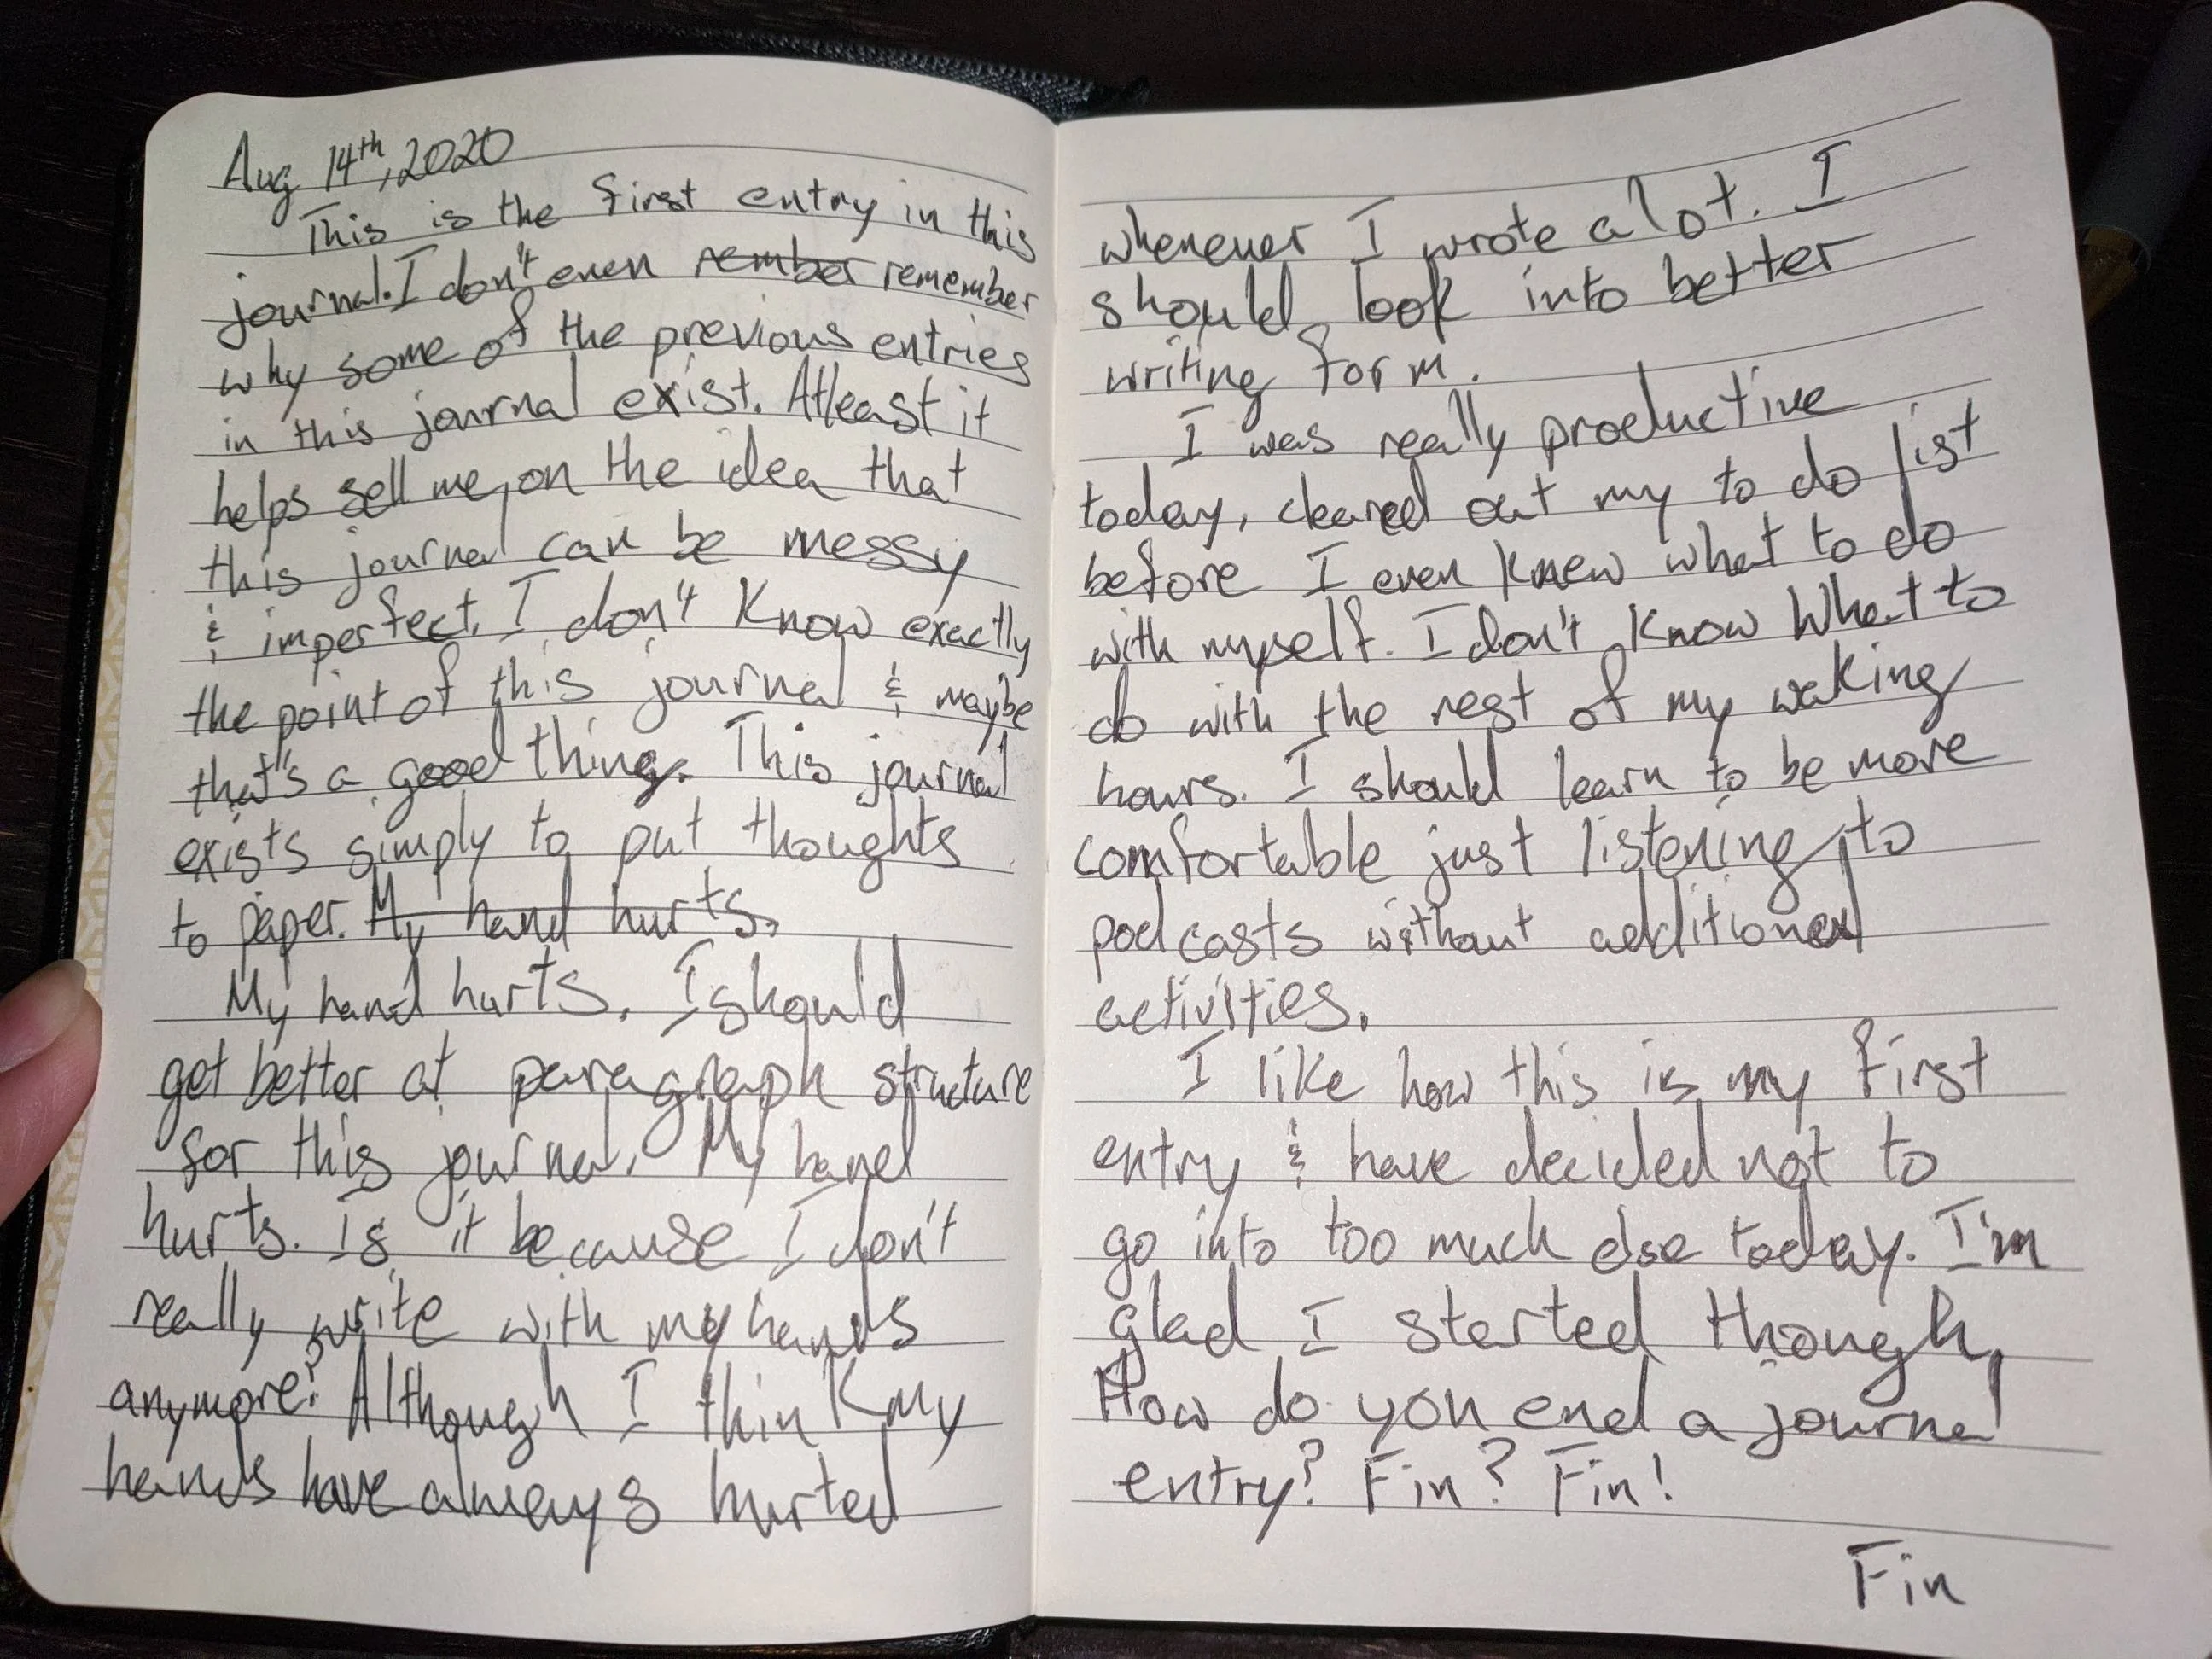 Aug 14th, 2020
This is the first entry in this
journal. I don't even rember remember
why some of the previous entries
in this journal exist. Atleast it
helps sell me on the idea that
this journal can be messy
& imperfect. I don't know exactly
the point of this journal & maybe
that's a good thing. This journal
exists simply to put thoughts
to paper. My hand hurts.
My hand hurts. I should
get better at paragraph structure
for this journal. My hand
hurts. Is it because I don't
really write with my hands
anymore? Although I think my
hands have always hurted
whenever I wrote a lot. I
should look into better
writing form.
I was really productive
today, cleared out my to do list
before I even knew what to do
with myself. I don't know what to
do with the rest of my waking
hours. I should learn to be more
comfortable just listening to
podcasts without additional
activities.
I like how this is my first
entry & have decided not to
go into too much else today. I'm
glad I started though.
How do you end a journal
entry? Fin? Fin!
Fin